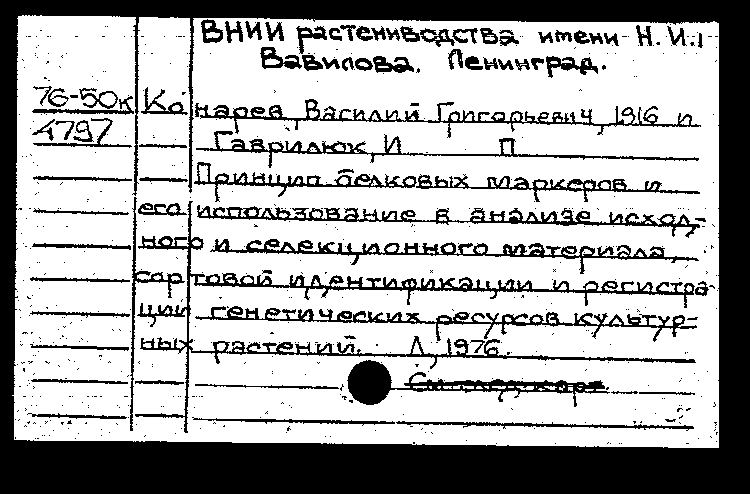 ВНИИ растениводства имени Н. И.
Вавилова. Ленинград.
76-50к Конарев, Василий Григорьевич, 1916 и
4797 Гаврилюк, И П
Принцип белковых маркеров и
его использование в анализе исход-
ного и селекционного материала,
сортовой идентификации и регистра
ции генетических ресурсов культур-
ных растений. Л, 1976.
См след карт.